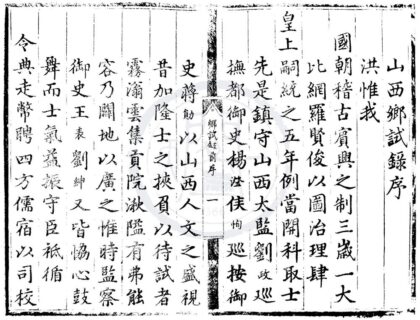 山西鄉試錄序
洪惟我
國朝稽古賓興之制三歲一大
比網羅賢俊以圖治理肆
皇上嗣統之五年例當開科取士
先是鎮守山西太監劉政巡
撫都御史楊侯恂巡按御
鄉試錄前序
一
史蔣以山西人文之盛視
昔加隆士之挾負以待試者
霧滃雲集貢院湫隘有弗能
容乃闢地以廣之惟時監察
御史王劉紳又皆恊心鼓
舞而士氣益振守臣祇循
令典走幣聘四方儒宿以司校